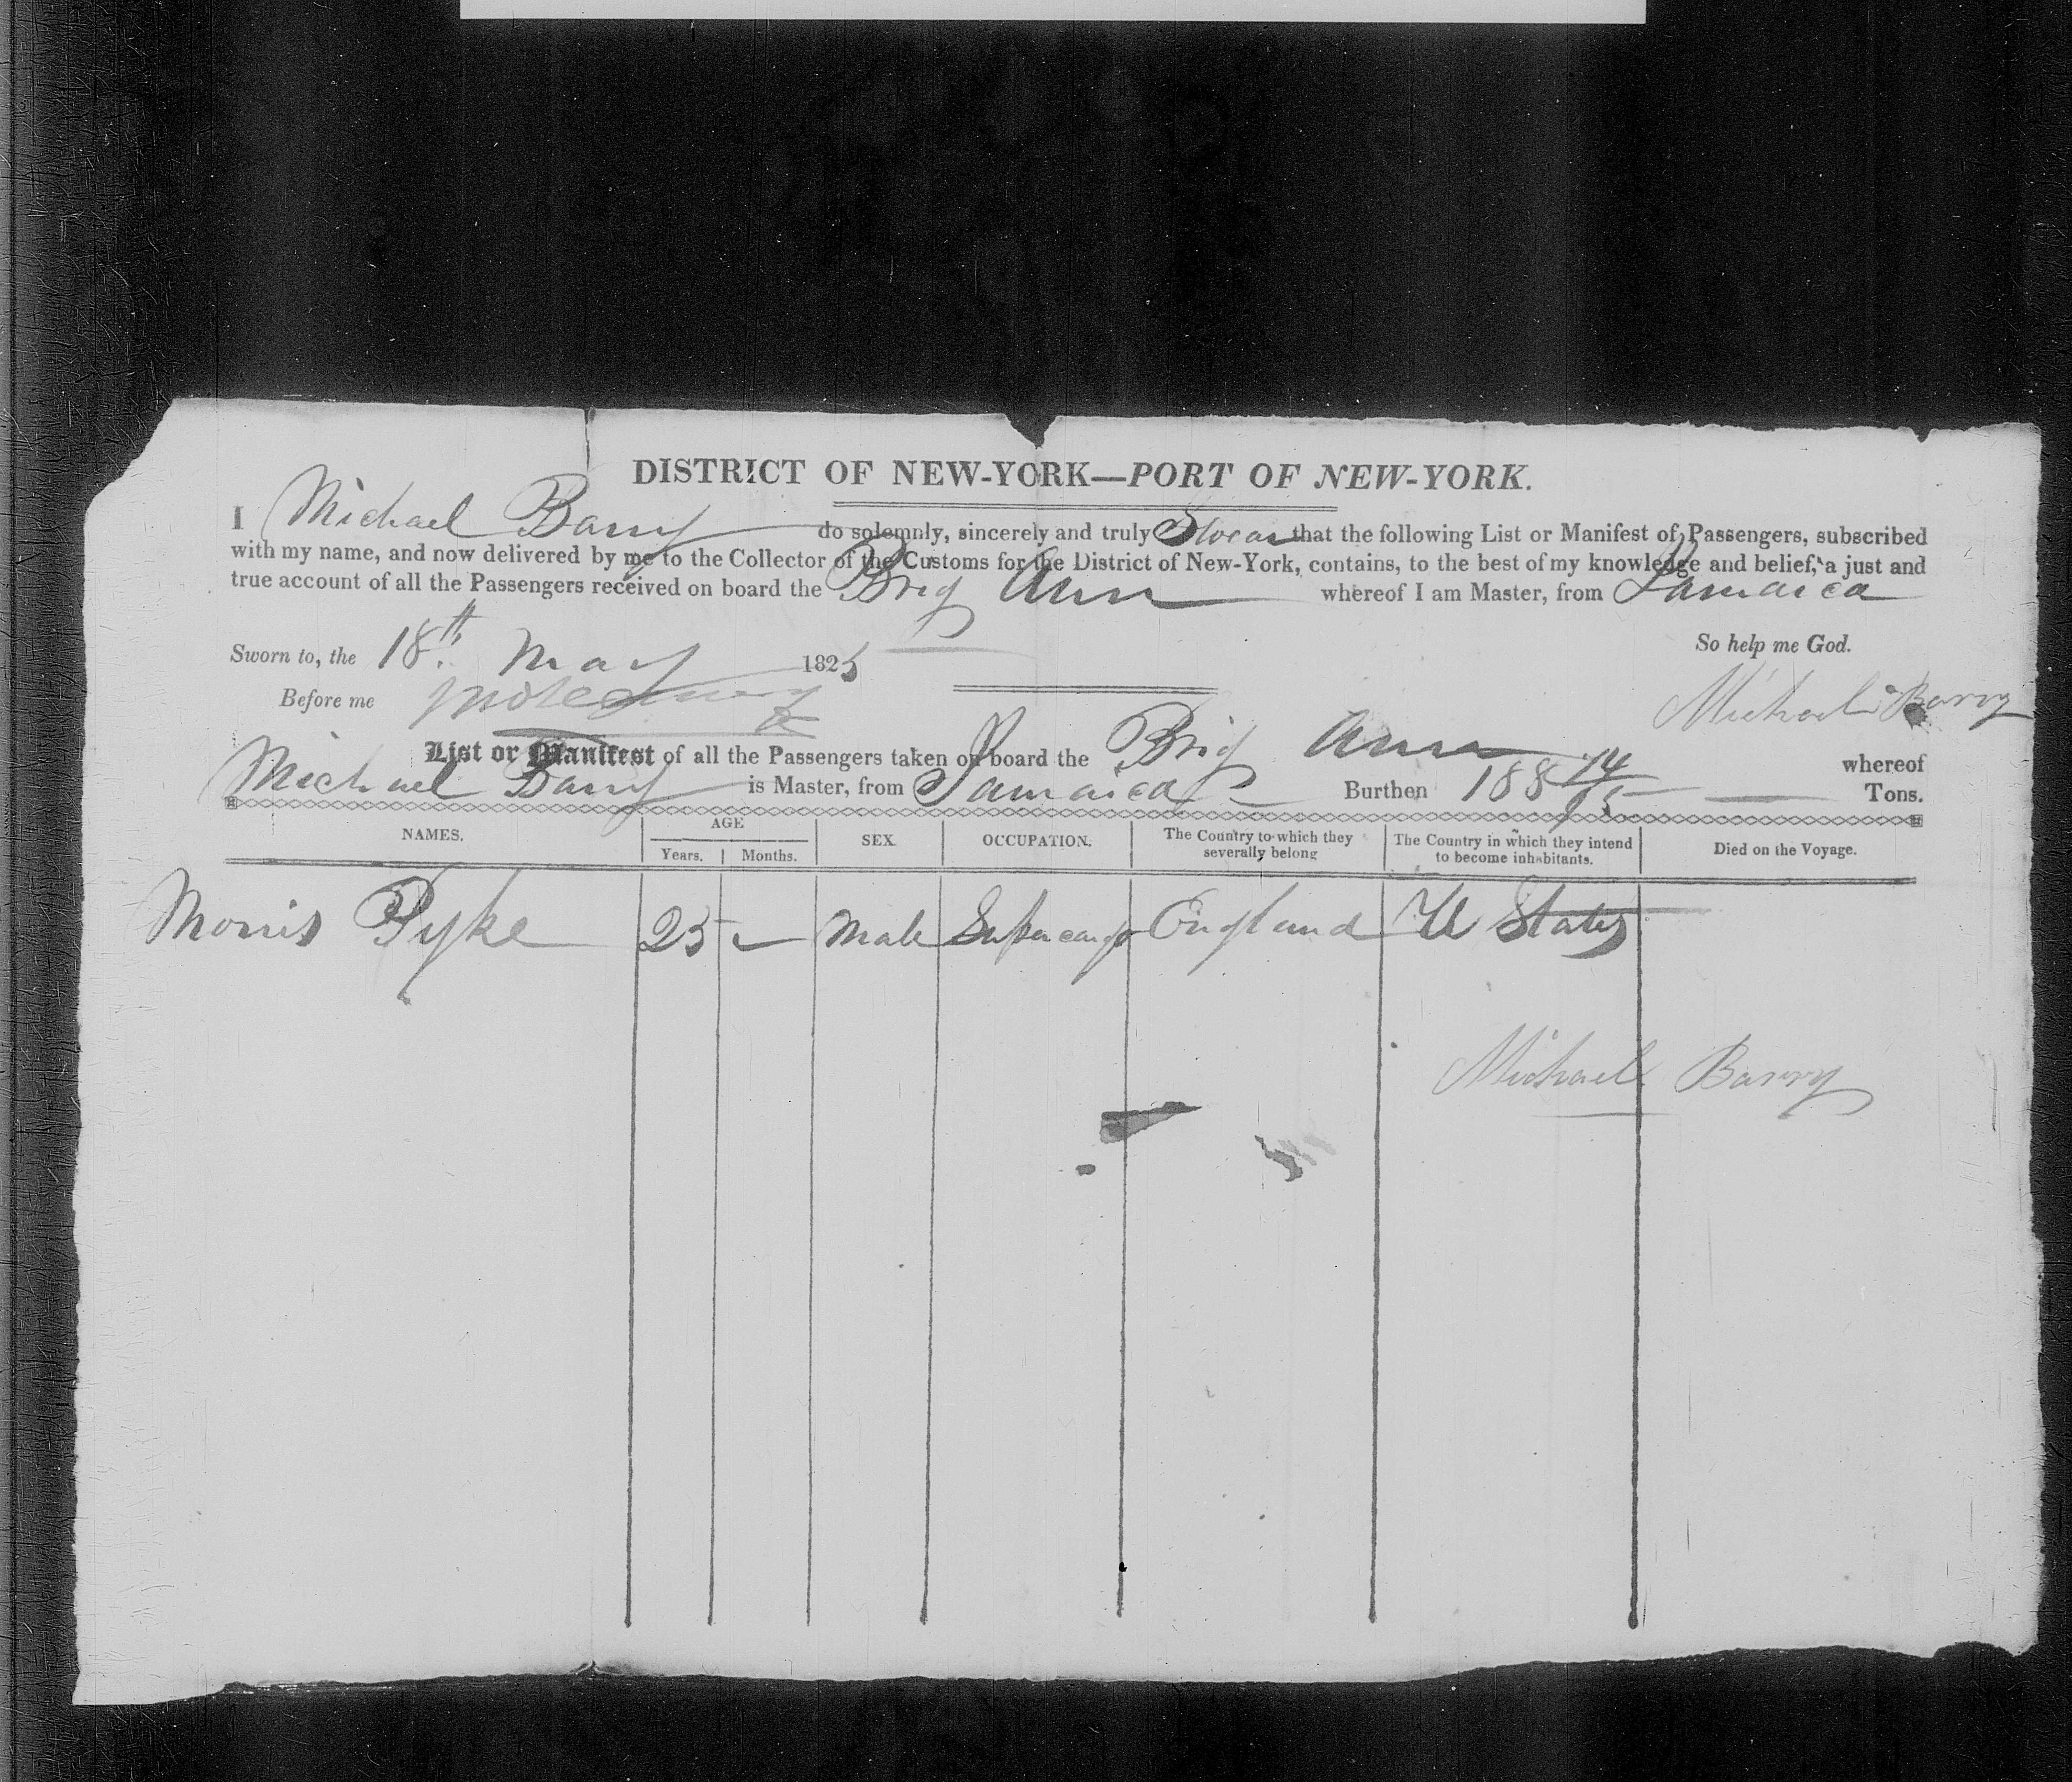 DISTRICT OF NEW-YORK—PORT OF NEW-YORK.
I Michael Barry do solemnly, sincerely and truly Swear that the following List or Manifest of Passengers, subscribed
with my name, and now delivered by me to the Collector of the Customs for the District of New-York, contains, to the best of my knowledge and belief, a just and
true account of all the Passengers received on board the Brig Ann whereof I am Master, from Jamaica
So help me God.
Sworn to, the 18th May 1825
Before me
Michael Barry
List or Manifest of all the Passengers taken on board the Brig Ann whereof
Michael Barry is Master, from Jamaica Burthen 188 14/95 Tons.
NAMES. AGE SEX. OCCUPATION. The Country to which they severally belong The Country in which they intend to become inhabitants. Died on the Voyage.
Years. Months.
Morris Pyke 25 — Male Supercargo England U States
Michael Barry